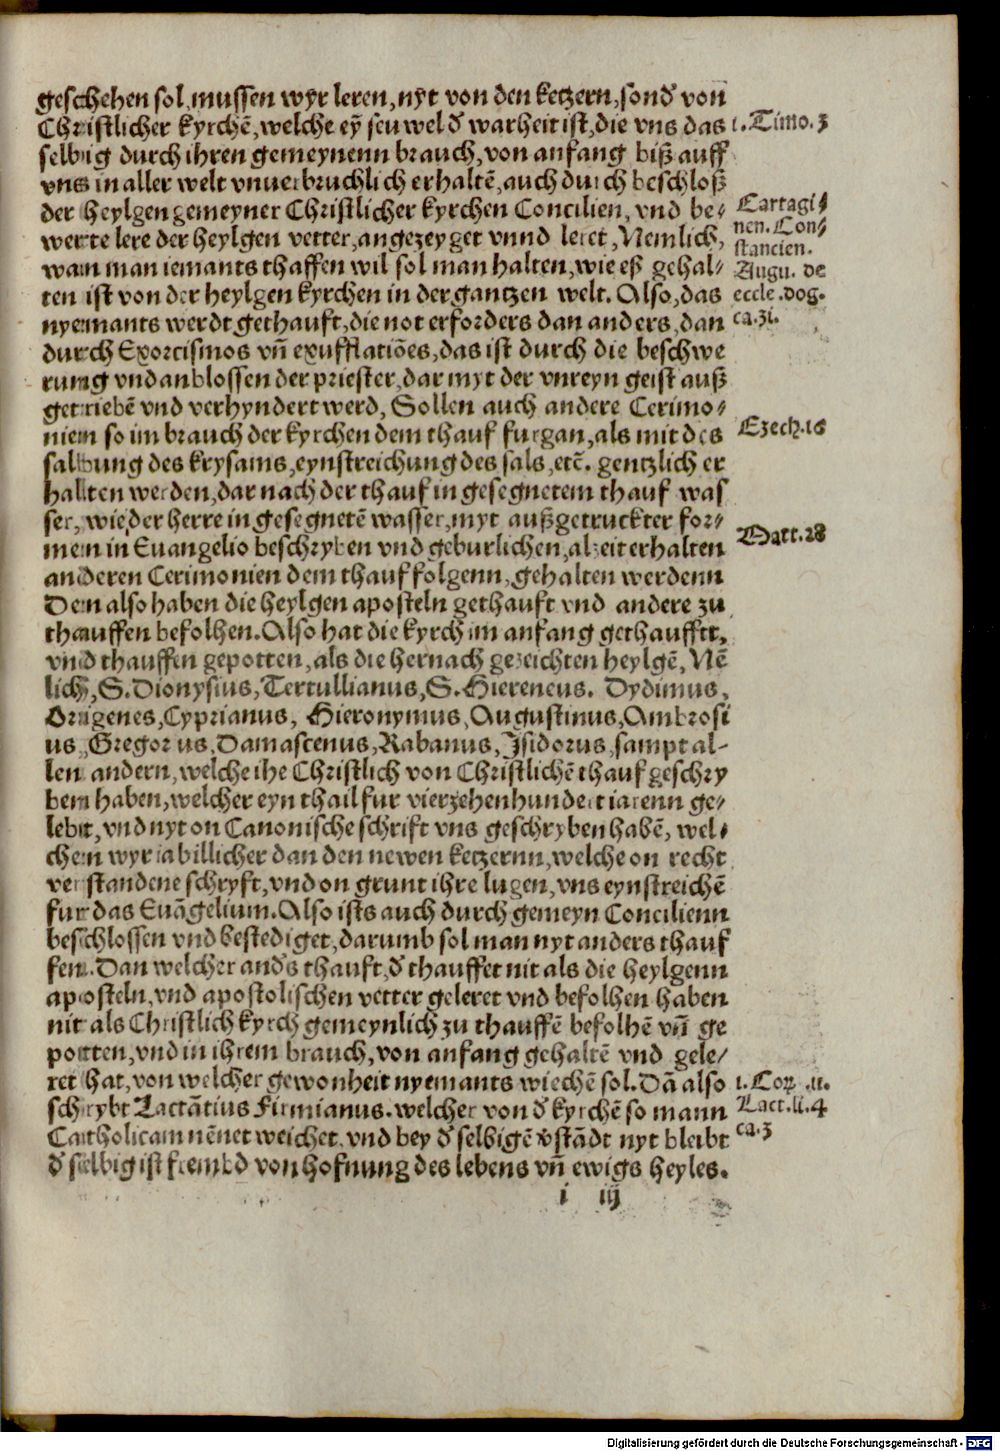 geschehen sol, mussen wyr leren, nyt von den ketzern, sond̕ von
Christlicher kyrchē, welche eȳ seuwel d̕ warheit ist, die vns das
1. Timo. 3
selbig durch ihren gemeynenn brauch, von anfang biß auff
vns in aller welt vnuerbruchlich erhaltē, auch durch beschloß
der heylgen gemeyner Christlicher kyrchen Concilien, vnd be-
Cartagi-
werte lere der heylgen vetter, angezeyget vnnd leret, Nemlich,
nen. Con-
stancien.
wan man iemants thaffen wil sol man halten, wie eß gehal-
Augu. de
ten ist von der heylgen kyrchen in der gantzen welt. Also, das
eccle. dog.
nyemants werdt gethauft, die not erforders dan anders, dan
ca. 31.
durch Exorcismos vn̄ exufflatiōes, das ist durch die beschwe
rung vnd anblossen der priester, dar myt der vnreyn geist auß
getriebē vnd verhyndert werd, Sollen auch andere Cerimo-
nien so im brauch der kyrchen dem thauf furgan, als mit des
Ezech. 16
salbung des krysams, eynstreichung des sals, etc̄. gentzlich er
halten werden, dar nach der thauf in gesegnetem thauf was
ser, wie der herre in gesegnetē wasser, myt außgetruckter for-
men in Euangelio beschryben vnd geburlichen, alzeit erhalten
Matt. 28
anderen Cerimonien dem thauf folgenn, gehalten werdenn
Den also haben die heylgen aposteln gethauft vnd andere zu
thauffen befolhen. Also hat die kyrch im anfang gethaufft,
vnd thauffen gepotten, als die hernach gezeichten heylgē, Nē
lich, S. Dionysius, Tertullianus, S. Hiereneus. Dydimus,
Origenes, Cyprianus, Hieronymus, Augustinus, Ambrosi
us, Gregorius, Damascenus, Rabanus, Isidorus, sampt al-
len andern, welche ihe Christlich von Christlichē thauf geschry
ben haben, welcher eyn thail fur vierzehenhundert iarenn ge-
lebt, vnd nyt on Canonische schrift vns geschryben habē, wel-
chen wyr ia billicher dan den newen ketzernn, welche on recht
verstandene schryft, vnd on grunt ihre lugen, vns eynstreichē
fur das Euāgelium. Also ists auch durch gemeyn Concilienn
beschlossen vnd bestediget, darumb sol man nyt anders thauf
fen. Dan welcher and̕s thauft, d̕ thauffet nit als die heylgenn
aposteln, vnd apostolischen vetter geleret vnd befolhen haben
nit als Christlich kyrch gemeynlich zu thauffē befolhē vn̄ ge
potten, vnd in ihrem brauch, von anfang gehaltē vnd gele-
ret hat, von welcher gewonheit nyemants wiechē sol. Dā also
1. Cor. 11.
schrybt Lactātius Firmianus. welcher von d̕ kyrchē so mann
Lact. li. 4
Catholicam nēnet weichet, vnd bey d̕ selbigē v̕stādt nyt bleibt
ca. 3
d̕ selbig ist frembd von hofnung des lebens vn̄ ewigs heyles.
i iij
Digitalisierung gefördert durch die Deutsche Forschungsgemeinschaft - DFG